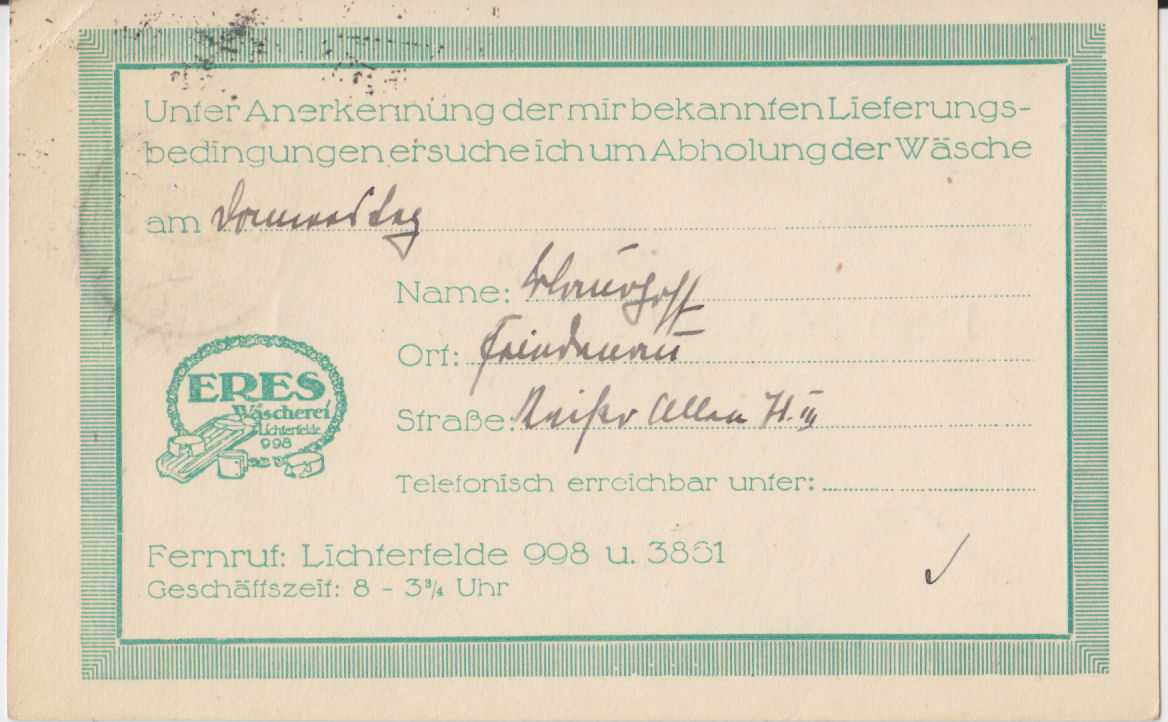 Unter Anerkennung der mir bekannten Lieferungs-
bedingungen ersuche ich um Abholung der Wäsche
am Donnerstag
Name:
Ort: Friedenau
ERES
Wäscherei
Lichterfelde
998
Straße: Kaiser Allee 71. III
Telefonisch erreichbar unter:
Fernruf: Lichterfelde 998 u. 3851
Geschäftszeit: 8 - 3¾ Uhr